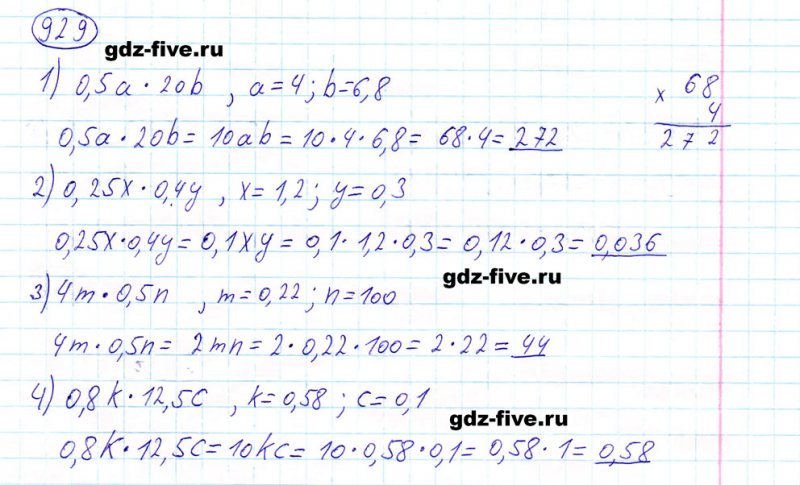 929
gdz-five.ru
1) 0,5a · 20b , a=4; b=6,8
0,5a · 20b = 10ab = 10·4·6,8 = 68·4 = 272
× 68
4
272
2) 0,25x · 0,4y , x=1,2; y=0,3
0,25x·0,4y = 0,1xy = 0,1·1,2·0,3 = 0,12·0,3 = 0,036
gdz-five.ru
3) 4m · 0,5n , m=0,22; n=100
4m · 0,5n = 2mn = 2·0,22·100 = 2·22 = 44
4) 0,8k · 12,5c , k=0,58; c=0,1
gdz-five.ru
0,8k·12,5c = 10kc = 10·0,58·0,1 = 0,58·1 = 0,58